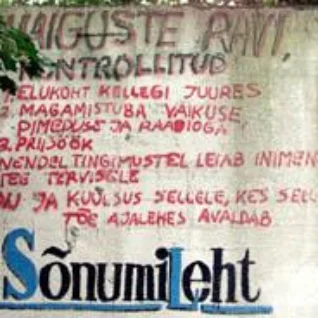 HAIGUSTE RAVI.
KONTROLLITUD
1. ELUKOHT KELLEGI JUURES
2. MAGAMISTUBA VAIKUSE
PIMEDUSE JA RAADIOGA
3. PRIISÖÖK
NENDEL TINGIMUSTEL LEIAB INIMENE
TEE TERVISELE
AU JA KUULSUS SELLELE, KES SELLE
TÕE AJALEHES AVALDAB
SõnumiLeht